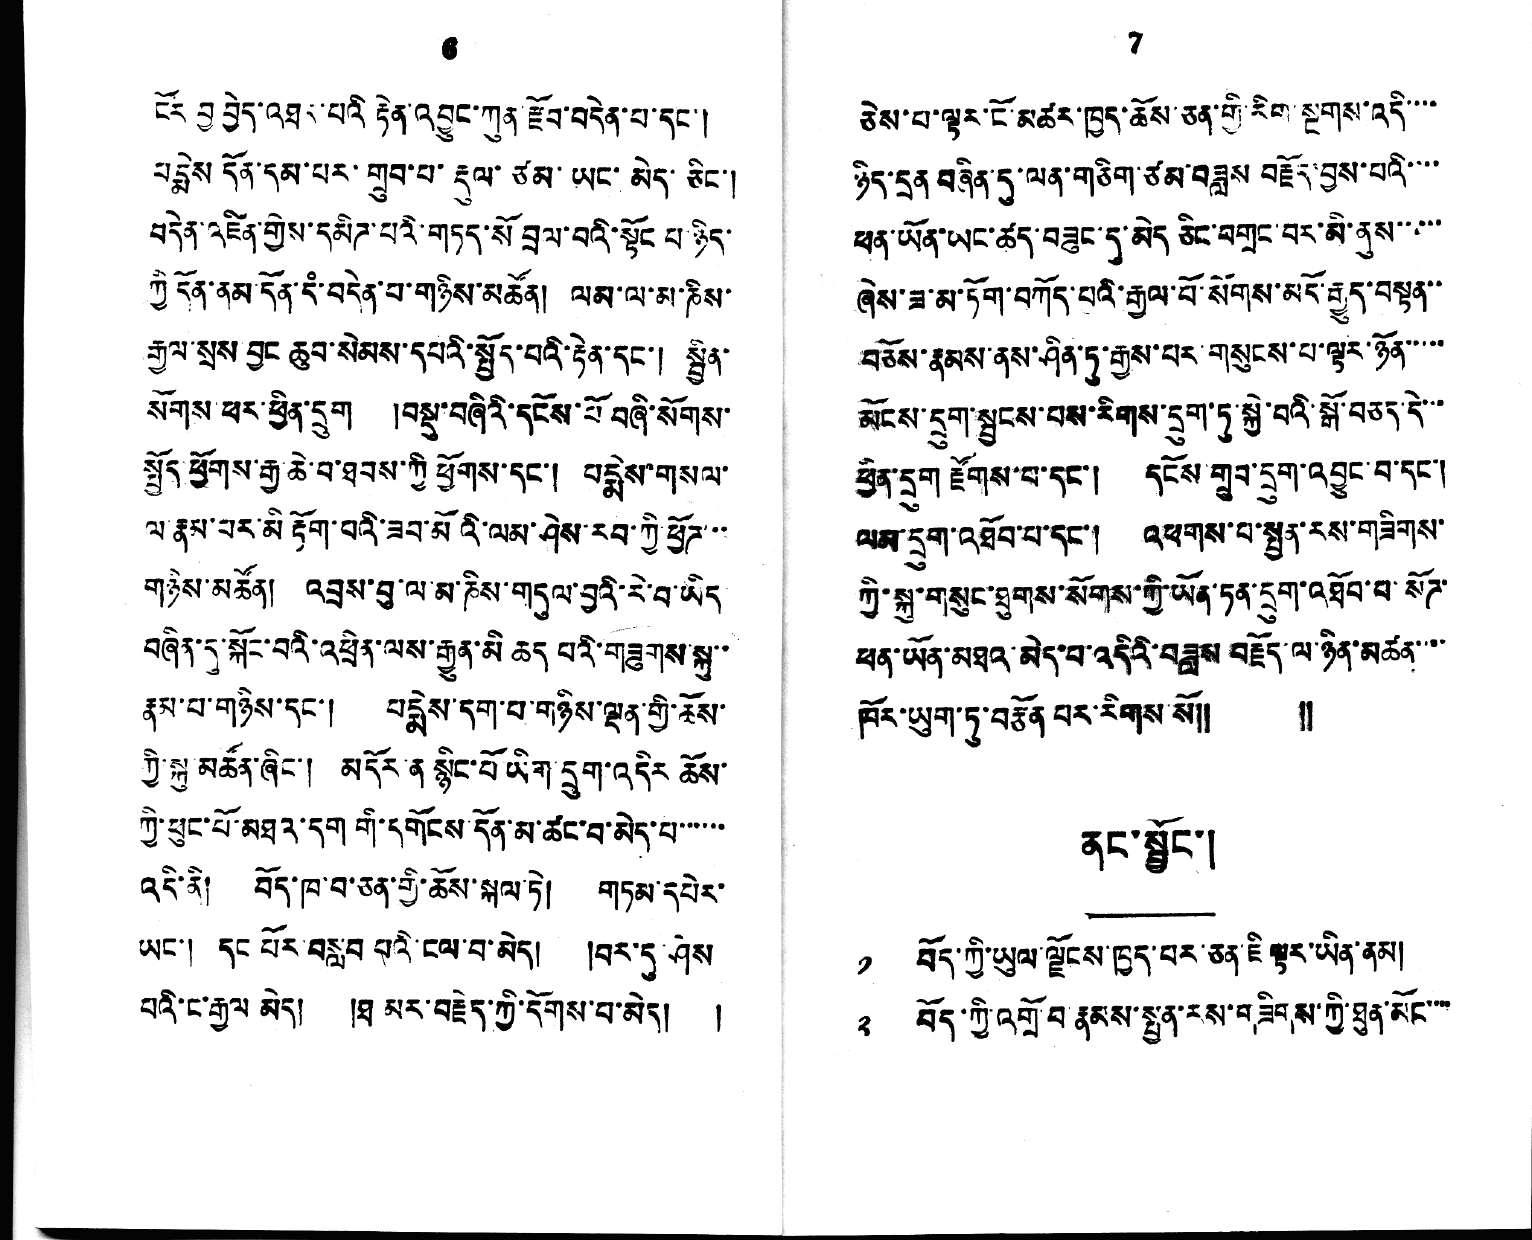 6
ངོར་བྱ་བྱེད་འཐད་པའི་རྟེན་འབྱུང་ཀུན་རྫོབ་བདེན་པ་དང་།
པདྨེས་དོན་དམ་པར་གྲུབ་པ་རྡུལ་ཙམ་ཡང་མེད་ཅིང་།
བདེན་འཛིན་གྱིས་དམིག་པའི་གཏད་སོ་བྲལ་བའི་སྟོང་པ་ཉིད་
ཀྱི་དོན་ནམ་དོན་དཾ་བདེན་པ་གཉིས་མཚོན། ལམ་ལ་མ་ཎིས་
རྒྱལ་སྲས་བྱང་ཆུབ་སེམས་དཔའི་སྤྱོད་པའི་རྟེན་དང་། སྦྱིན་
སོགས་ཕར་ཕྱིན་དྲུག །བསྡུ་བཞིའི་དངོས་པོ་བཞི་སོགས་
སྤྱོད་ཕྱོགས་རྒྱ་ཆེ་བ་ཐབས་ཀྱི་ཕྱོགས་དང་། པདྨེས་གསལ་
ལ་རྣམ་པར་མི་རྟོག་པའི་ཟབ་མོ་འི་ལམ་ཤེས་རབ་ཀྱི་ཕྱོག་་་
གཉིས་མཚོན། འབྲས་བུ་ལ་མ་ཎིས་གདུལ་བྱའི་རེ་བ་ཡིད་
བཞིན་དུ་སྐོང་བའི་འཕྲིན་ལས་རྒྱུན་མི་ཆད་པའི་གཟུགས་སྐུ་་་
རྣམ་པ་གཉིས་དང་། པདྨེས་དག་པ་གཉིས་ལྡན་གྱི་ཆོས་
ཀྱི་སྐུ་མཚོན་ཞིང་། མདོར་ན་སྙིང་པོ་ཡིག་དྲུག་འདིར་ཆོས་
ཀྱི་ཕུང་པོ་མཐའ་དག་གི་དགོངས་དོན་མ་ཚང་བ་མེད་པ་་་་་་
འདི་ནི། བོད་ཁ་བ་ཅན་གྱི་ཆོས་སྐལ་ཏེ། གཏམ་དཔེར་
ཡང་། དང་པོར་བསླབ་པའི་ངལ་བ་མེད། །བར་དུ་ཤེས་
པའི་ང་རྒྱལ་མེད། །ཐ་མར་བརྗེད་ཀྱི་དོགས་པ་མེད། །
7
ཅེས་པ་ལྟར་ངོ་མཚར་ཁྱད་ཆོས་ཅན་གྱི་རིག་སྔགས་འདི་་་་་
ཉིད་དྲན་བཞིན་དུ་ལན་གཅིག་ཙམ་བཟླས་བརྗོད་བྱས་པའི་་་་་
ཕན་ཡོན་ཡང་ཚད་བཟུང་དུ་མེད་ཅིང་བགྲང་བར་མི་ནུས་་་་་་
ཞེས་ཟ་མ་ཏོག་བཀོད་པའི་རྒྱལ་པོ་སོགས་མདོ་རྒྱུད་བསྟན་་
བཅོས་རྣམས་ནས་ཤིན་ཏུ་རྒྱས་པར་གསུངས་པ་ལྟར་ཉོན་་་་་
མོངས་དྲུག་སྦྱངས་བས་རིགས་དྲུག་ཏུ་སྐྱེ་བའི་སྒོ་བཅད་དེ་་་་
ཕྱིན་དྲུག་རྫོགས་པ་དང་། དངོས་གྲུབ་དྲུག་འབྱུང་བ་དང་།
ལམ་དྲུག་འཐོབ་པ་དང་། འཕགས་པ་སྤྱན་རས་གཟིགས་
ཀྱི་སྐུ་གསུང་ཐུགས་སོགས་ཀྱི་ཡོན་ཏན་དྲུག་འཐོབ་པ་སོག་
ཕན་ཡོན་མཐའ་མེད་པ་འདིའི་བཟླས་བརྗོད་ལ་ཉིན་མཚན་་་་
ཁོར་ཡུག་ཏུ་བརྩོན་པར་རིགས་སོ།། །།
ནང་སྦྱོང་།
༡ བོད་ཀྱི་ཡུལ་ལྗོངས་ཁྱད་པར་ཅན་ཇི་ལྟར་ཡིན་ནམ།
༢ བོད་ཀྱི་འགྲོ་བ་རྣམས་སྤྱན་རས་གཟིགས་ཀྱི་ཐུན་མོང་་་་